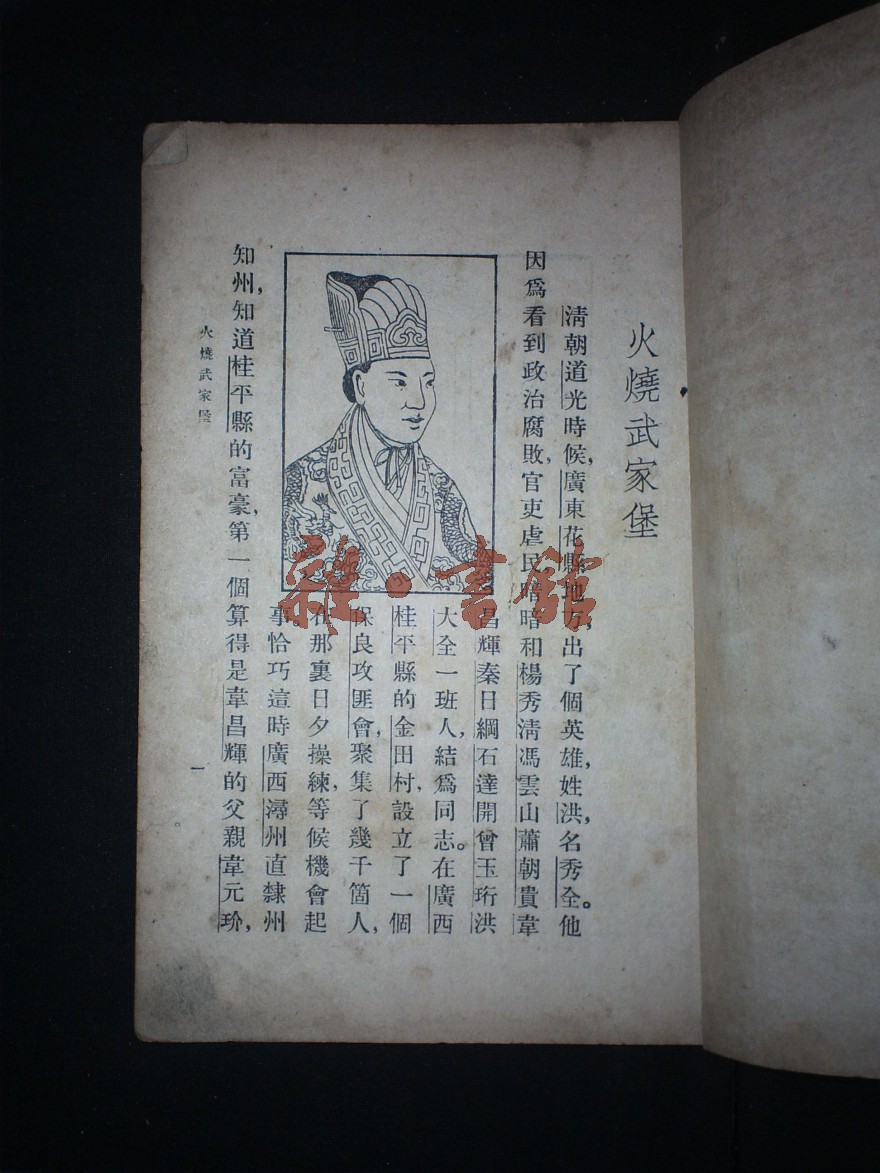 火燒武家堡
清朝道光時候,廣東花縣地方,出了個英雄,姓洪,名秀全。他
因爲看到政治腐敗,官吏虐民,暗暗和楊秀清馮雲山蕭朝貴韋
昌輝秦日綱石達開曾玉珩洪
大全一班人,結爲同志。在廣西
桂平縣的金田村,設立了一個
保良攻匪會,聚集了幾千箇人,
在那裏日夕操練,等候機會起
事。恰巧這時廣西潯州直隸州
知州,知道桂平縣的富豪,第一個算得是韋昌輝的父親韋元玠,
火燒武家堡
一
雜·書館